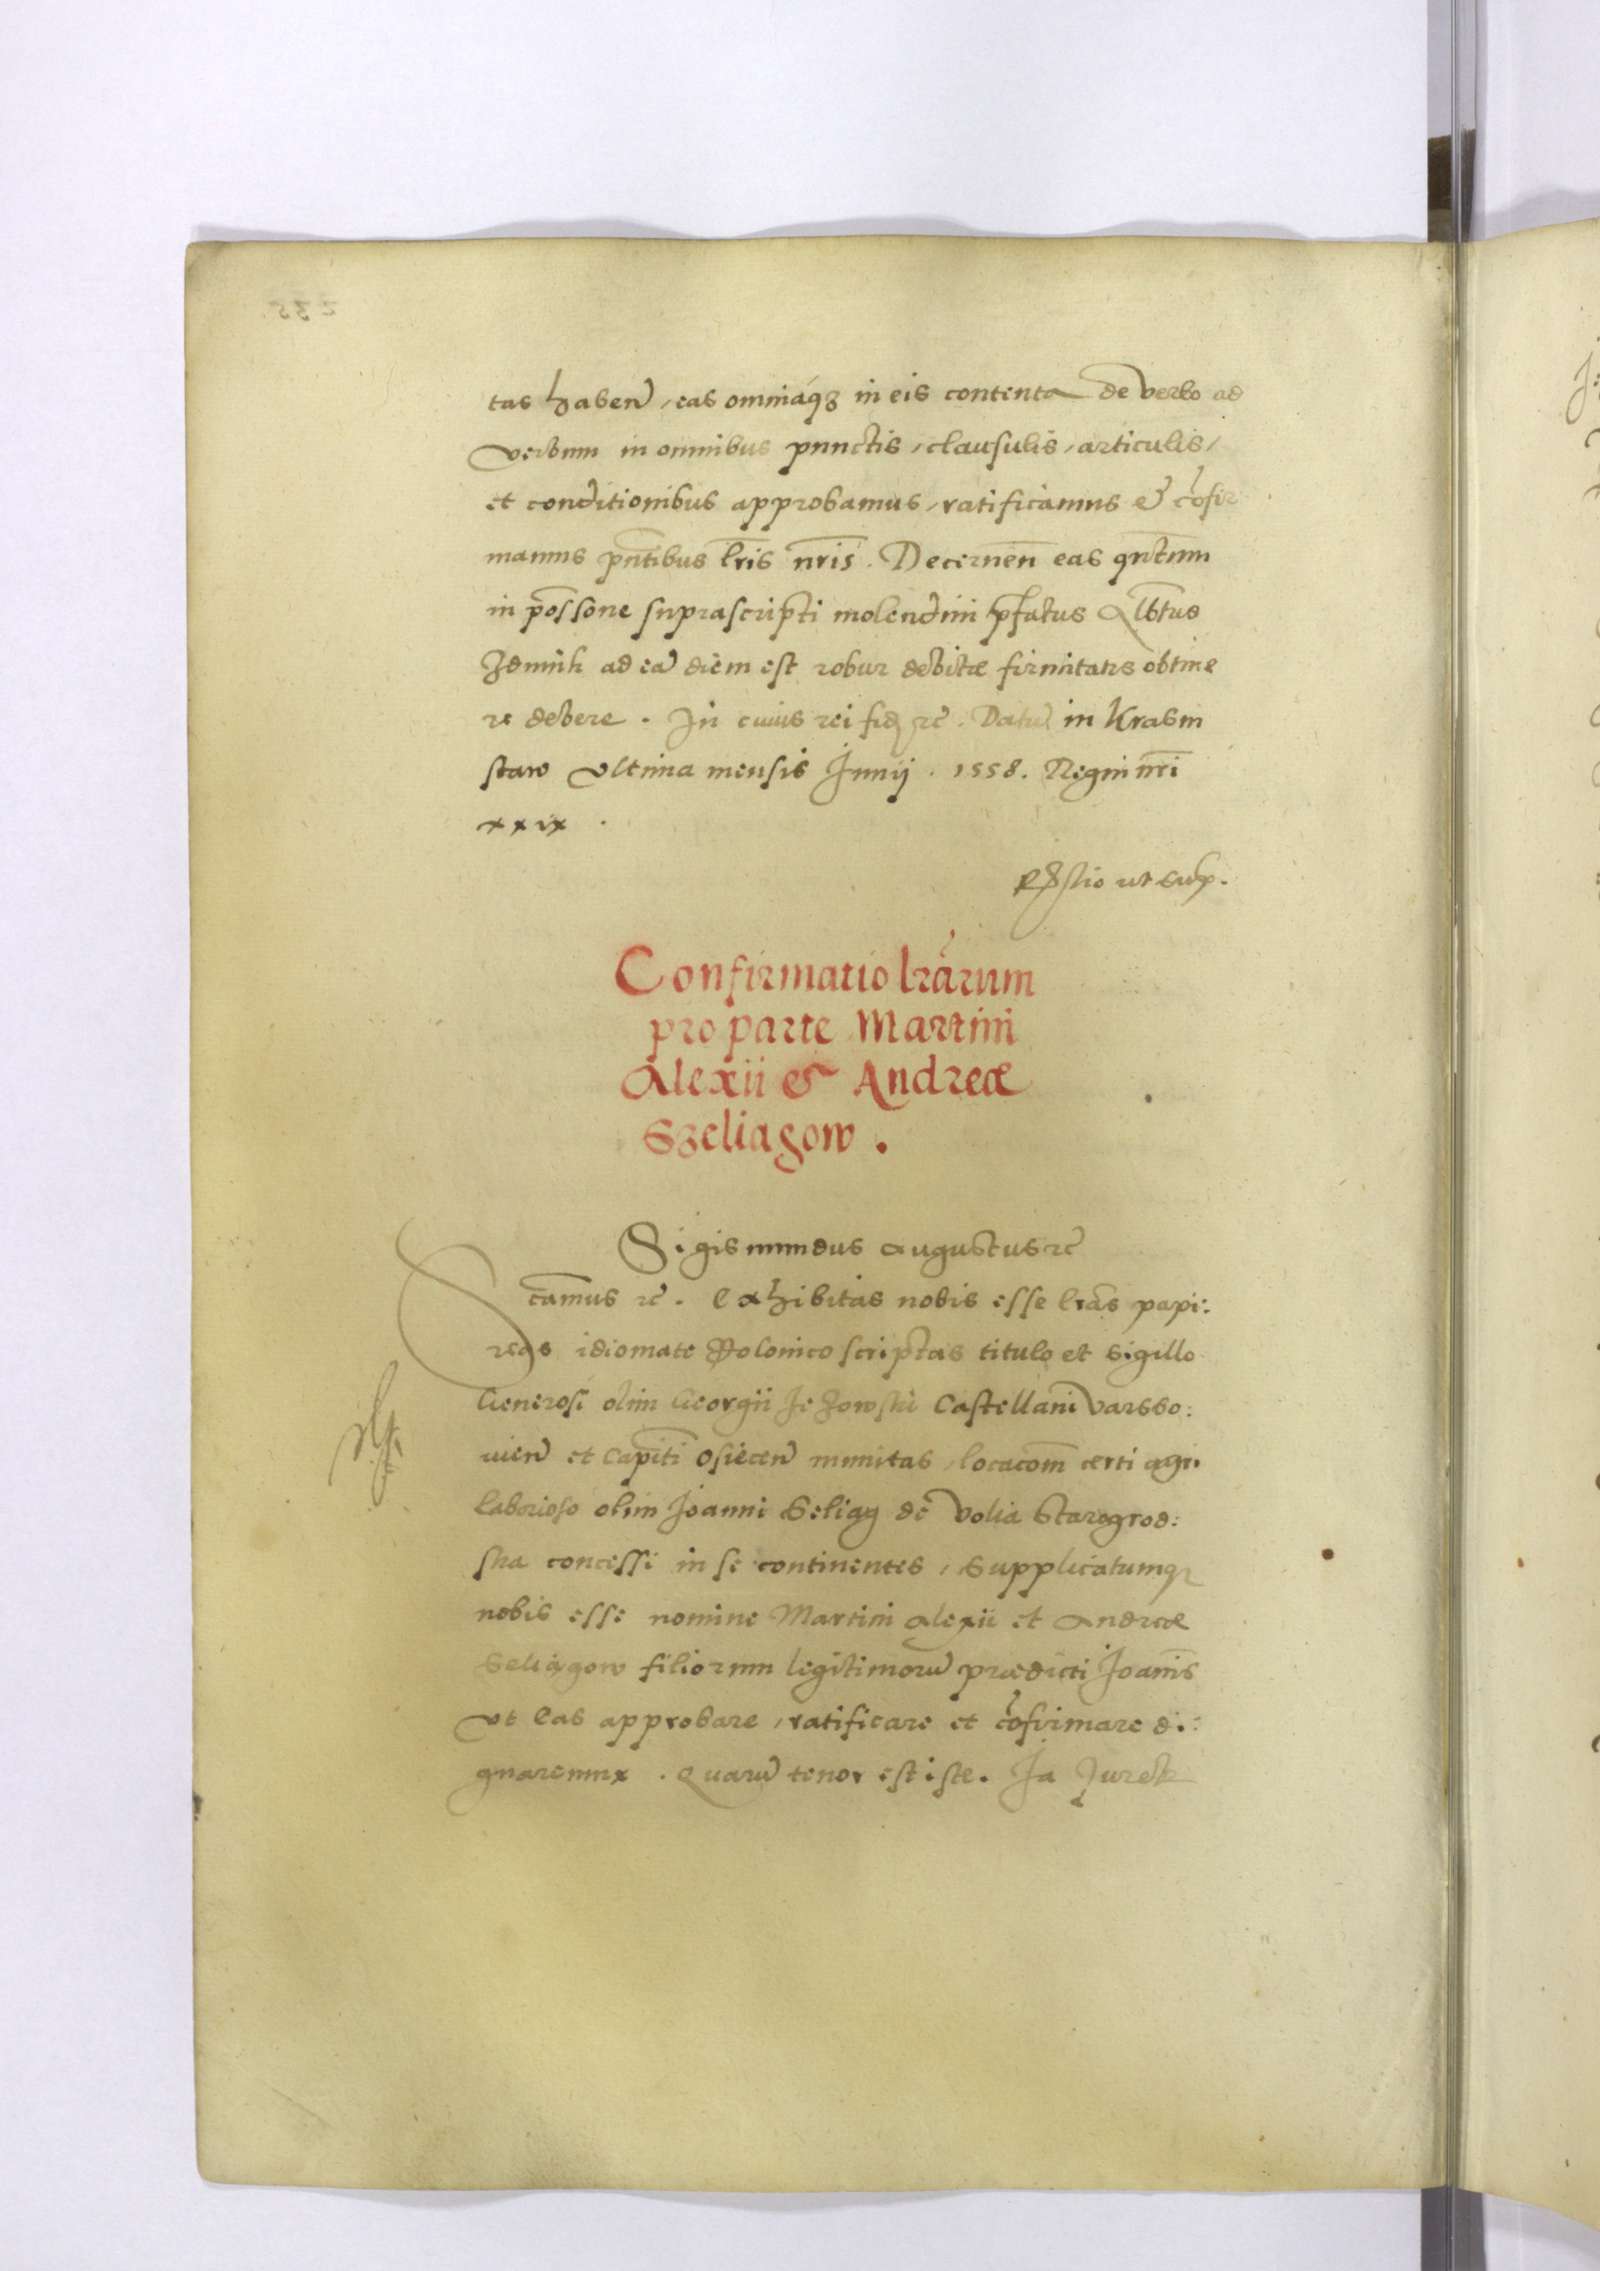 tas haben̄, eas omniaq̃ȝ in eis contenta de verbo ad
verbum in omnibus punctis, clausulis, articulis,
et conditionibus approbamus, ratificamus et cōfir
mamus pn̄tibus lris nr̄is. Decernen̄ eas qn̄tum
in poss̄one suprascripti molendini p̄fatus Albt̄us
Zdunik ad eā diem est robur debitæ firmitatis obtine
re debere. In cuius rei fidȩ rc̄. Datū in Krasni
staw ultima mensis Junij. 1558. Regni nr̄i
xxix.
ut sup.
Confirmatio lrārum
pro parte Martini
Alexii & Andreæ
Szeliagow.
Sigismundus Augustus rc̄
S cāmus rc̄. Exhibitas nobis esse lrās papi:
reas idiomate Polonico scriptas titulo et sigillo
Generosi olim Georgii Jezowski Castellani Varsso:
vien̄ et Capīti Osiecen̄ munitas, locacōm certi agri
laborioso olim Joanni Seliag de Volia Starogrod:
ska concessi in se continentes, supplicatumq
nobis esse nomine Martini Alexii et Andreæ
Seliagow filiorum legitimorū prædicti Joan̄is
ut eas approbare, ratificare et cōfirmare di:
gnaremur. Quarū tenor est iste. Ja Jurek